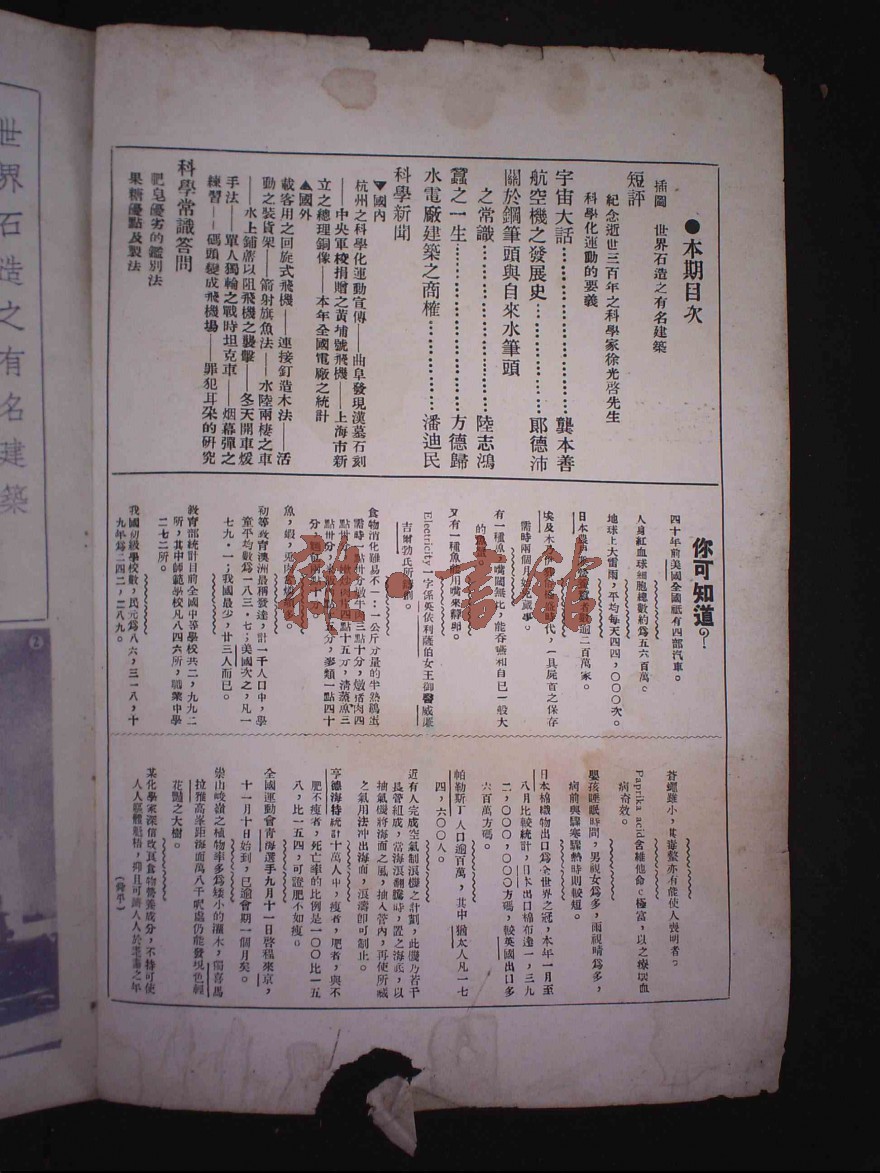 ●本期目次
插圖　世界石造之有名建築
短評
紀念逝世三百年之科學家徐光啓先生
科學化運動的要義
宇宙大話…………………龔本善
航空機之發展史…………………郞德沛
關於鋼筆頭與自來水筆頭
之常識…………………陸志鴻
蠶之一生…………………方德歸
水電廠建築之商榷…………………潘迪民
科學新聞
▼國內
杭州之科學化運動宣傳——曲阜發現漢墓石刻
——中央軍校捐贈之黃埔號飛機——上海市新
立之總理銅像——本年全國電廠之統計
▲國外
載客用之回旋式飛機——連接釘造木法——活
動之裝貨架——箭射旗魚法——水陸兩棲之車
——水上鋪蓆以阻飛機之襲擊——冬天開車煖
手法——單人獨輪之戰時坦克車——烟幕彈之
練習——碼頭變成飛機場——罪犯耳朶的研究
科學常識答問
肥皂優劣的鑑別法
果糖優點及製法
你可知道?
四十年前美國全國祇有四部汽車。
人身紅血球細胞總數約爲五六百萬。
地球上大雷雨，平均每天四四，〇〇〇次。
日本農 二百萬家。
埃及木乃伊 時代，一具屍首之保存
需時兩個月
有一種魚 嘴闊無比，能吞嚥和自己一般大
的魚
又有一種魚 用嘴來
Electricity一字係英依利薩伯女王御醫威廉
吉爾勃氏所
食物消化難易不一：一公斤分量的半熟鷄蛋
需時一點卅分 牛肉三點十分，燉猪肉四
點卅分 四點十五分，清蒸魚三
點卅分， 五分，麥類一點四十
分， 兩點
魚，蝦，兎肉
初等敎育澳洲最稱發達，計一千人口中，學
童平均數爲一八三．七；美國次之，凡一
七九．一；我國最少，廿三人而已。
敎育部統計目前全國中等學校共二，九九二
所，其中師範學校凡八四六所，職業中學
二七二所。
我國初級學校數，民元爲八六，三一八，十
九年爲二四二，二八九。
蒼蠅雖小， 毒螫亦有能使人喪明者。
Paprika acid含維他命c極富，以之療壞血
病奇效。
嬰孩睡眠時間，男視女爲多，雨視晴爲多，
病前與驟寒驟熱時則較短。
日本棉織物出口爲全世界之冠，本年一月至
八月比較統計，日本出口棉布達一，三九
二，〇〇〇，〇〇〇方碼，較英國出口多
六百萬方碼。
帕勒斯丁人口逾百萬，其中猶太人凡一七
四，六〇〇人。
近有人完成空氣制浪機之計劃，此機乃若干
長管組成，當海浪翻騰時，置之海底，以
抽氣機將海面之風，抽入管內，再使所喊
之氣用法冲出海面，浪濤卽可制止。
亨德海特統計十萬人中，瘦者，肥者，與不
肥不瘦者，死亡率的比例是一〇〇比一五
八，比一五四，可證肥不如瘦。
全國運動會靑海選手九月十一日啓程來京，
十一月十日始到，已逾會期一個月矣。
崇山峻嶺之植物率多爲矮小的灌木，獨喜馬
拉雅高峯距海面萬八千呎處仍能發現色
花豔之大樹。
某化學家深信改良食物營養成分，不特可使
人人軀體魁梧，抑且可躋人人於耄耋之年
新·書館
世界石造之有名建築
2